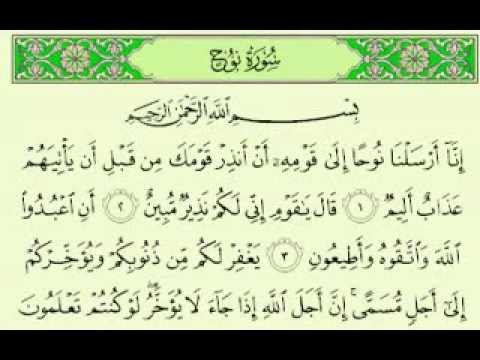 سُورَةُ نُوحٍ
بِسْمِ ٱللَّهِ ٱلرَّحْمَٰنِ ٱلرَّحِيمِ
إِنَّآ أَرْسَلْنَا نُوحًا إِلَىٰ قَوْمِهِۦٓ أَنْ أَنذِرْ قَوْمَكَ مِن قَبْلِ أَن يَأْتِيَهُمْ
عَذَابٌ أَلِيمٌ ١ قَالَ يَٰقَوْمِ إِنِّى لَكُمْ نَذِيرٌ مُّبِينٌ ٢ أَنِ ٱعْبُدُوا۟
ٱللَّهَ وَٱتَّقُوهُ وَأَطِيعُونِ ٣ يَغْفِرْ لَكُم مِّن ذُنُوبِكُمْ وَيُؤَخِّرْكُمْ
إِلَىٰٓ أَجَلٍ مُّسَمًّى ۚ إِنَّ أَجَلَ ٱللَّهِ إِذَا جَآءَ لَا يُؤَخَّرُ ۖ لَوْ كُنتُمْ تَعْلَمُونَ